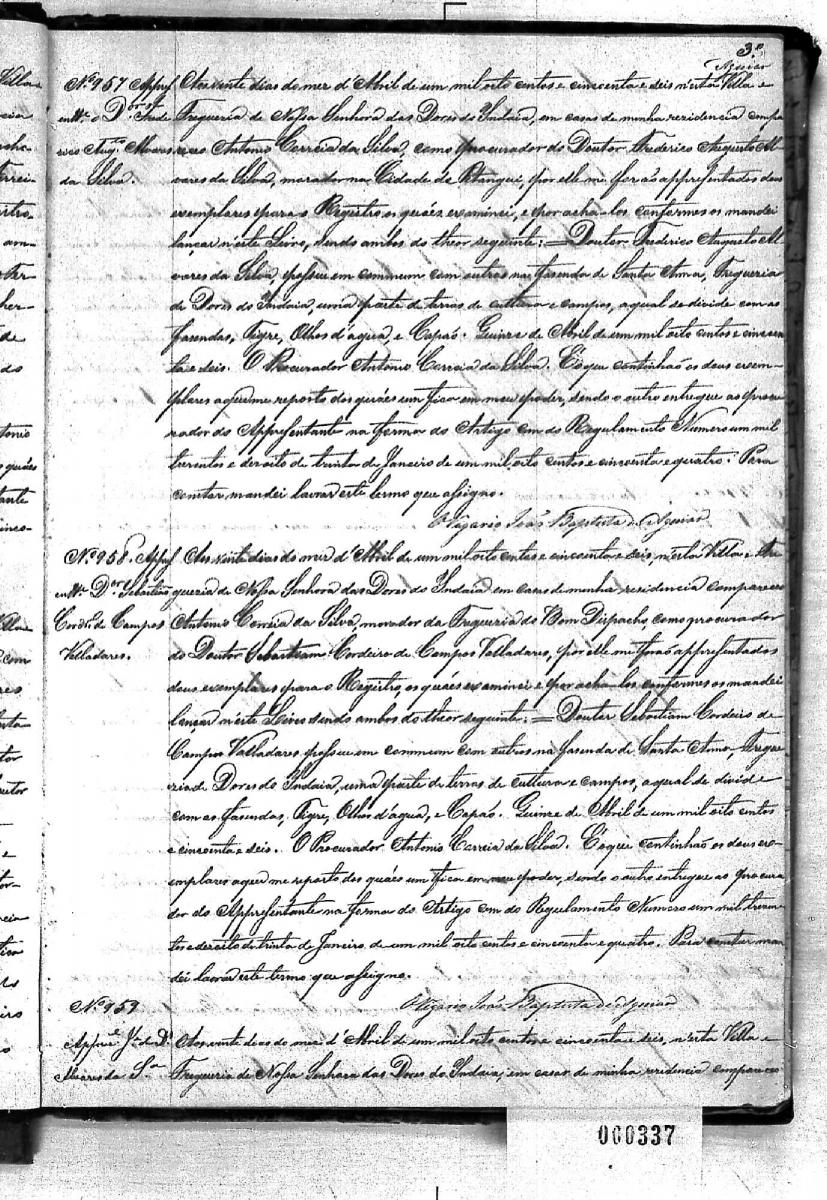 3.º
Aguiar
Nº 957 Appres
entte. o Dor. Frede
rico Augto. Alvares
da Silva.
Aos vinte dias do mez d'Abril de um mil oito centos e cincoenta e seis n'esta Villa e
Freguezia de Nossa Senhora das Dores do Indaiá, em casas de minha residencia compa
receo Antonio Correia da Silva, como procurador do Doutor Frederico Augusto Al
vares da Silva, morador na Cidade de Pitangui, por elle me forão appresentados dous
exemplares para o Registro os quáes examinei, e por acha-los conformes os mandei
lançar n'este Livro, sendo ambos do theor seguinte: = Doutor Frederico Augusto Al
vares da Silva, possue em commum com outros na fasenda de Santa Anna, Freguezia
de Dores do Indaiá, uma parte de terras de cultura e campos, a qual se divide com as
fasendas, Tigre, Olhos d'agua, e Capão. Quinze de Abril de um mil oito centos e cincoen
ta e seis. O Procurador Antonio Correia da Silva. E o que continhão os dous exem-
plares a que me reporto dos quáes um fica em meu poder, sendo o outro entregue ao procu
rador do Appresentante na forma do Artigo cem do Regulamento Numero um mil
trezentos e dezoito de trinta de Janeiro de um mil oito centos e cincoenta e quatro. Para
constar mandei lavrar este termo que assigno.
O Vigario João Baptista de Aguiar
Nº 958. Appres
entte. Dor. Sebastião
Cordro. de Campos
Valladares.
Aos vinte dias do mez d'Abril de um mil oito centos e cincoenta e seis, n'esta Villa e Fre
guezia de Nossa Senhora das Dores do Indaiá em casas de minha residencia compareceo
Antonio Correia da Silva, morador da Freguezia do Bom Dispacho, como procurador
do Doutor Sebastiam Cordeiro de Campos Valladares, por elle me forão appresentados
dous exemplares para o Registro, os quáes examinei e por acha-los conformes os mandei
lançar n'este Livro sendo ambos do theor seguinte: = Doutor Sebastiam Cordeiro de
Campos Valladares, possue em commum com outros na fasenda de Santa Anna, Fregue
zia de Dores do Indaiá, uma parte de terras de cultura e campos, a qual se divide
com as fasendas, Tigre, Olhos d'agua, e Capão. Quinze de Abril de um mil oito centos
e cincoenta e seis. O Procurador Antonio Correia da Silva. E o que continhão os dous ex-
emplares a que me reporto dos quáes um fica em meu poder, sendo o outro entregue ao procura
dor do Appresentante na forma do Artigo cem do Regulamento Numero um mil trezen
tos e dezoito de trinta de Janeiro de um mil oito centos e cincoenta e quatro. Para constar man
dei lavrar este termo que assigno.
O Vigario João Baptista de Aguiar
Nº 959
Appre
Alvares da Sa.
Aos vinte dias do mez d'Abril de um mil oito centos e cincoenta e seis, n'esta Villa e
Freguezia de Nossa Senhora das Dores do Indaiá, em casas de minha residencia compareceo
000337